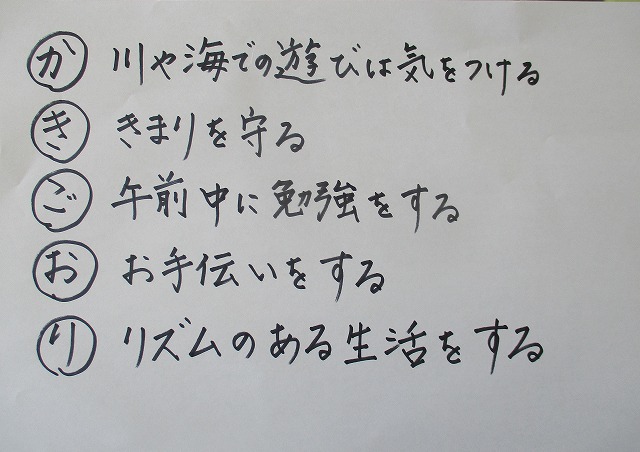 か 川や海での遊びは気をつける
き きまりを守る
ご 午前中に勉強をする
お お手伝いをする
り リズムのある生活をする